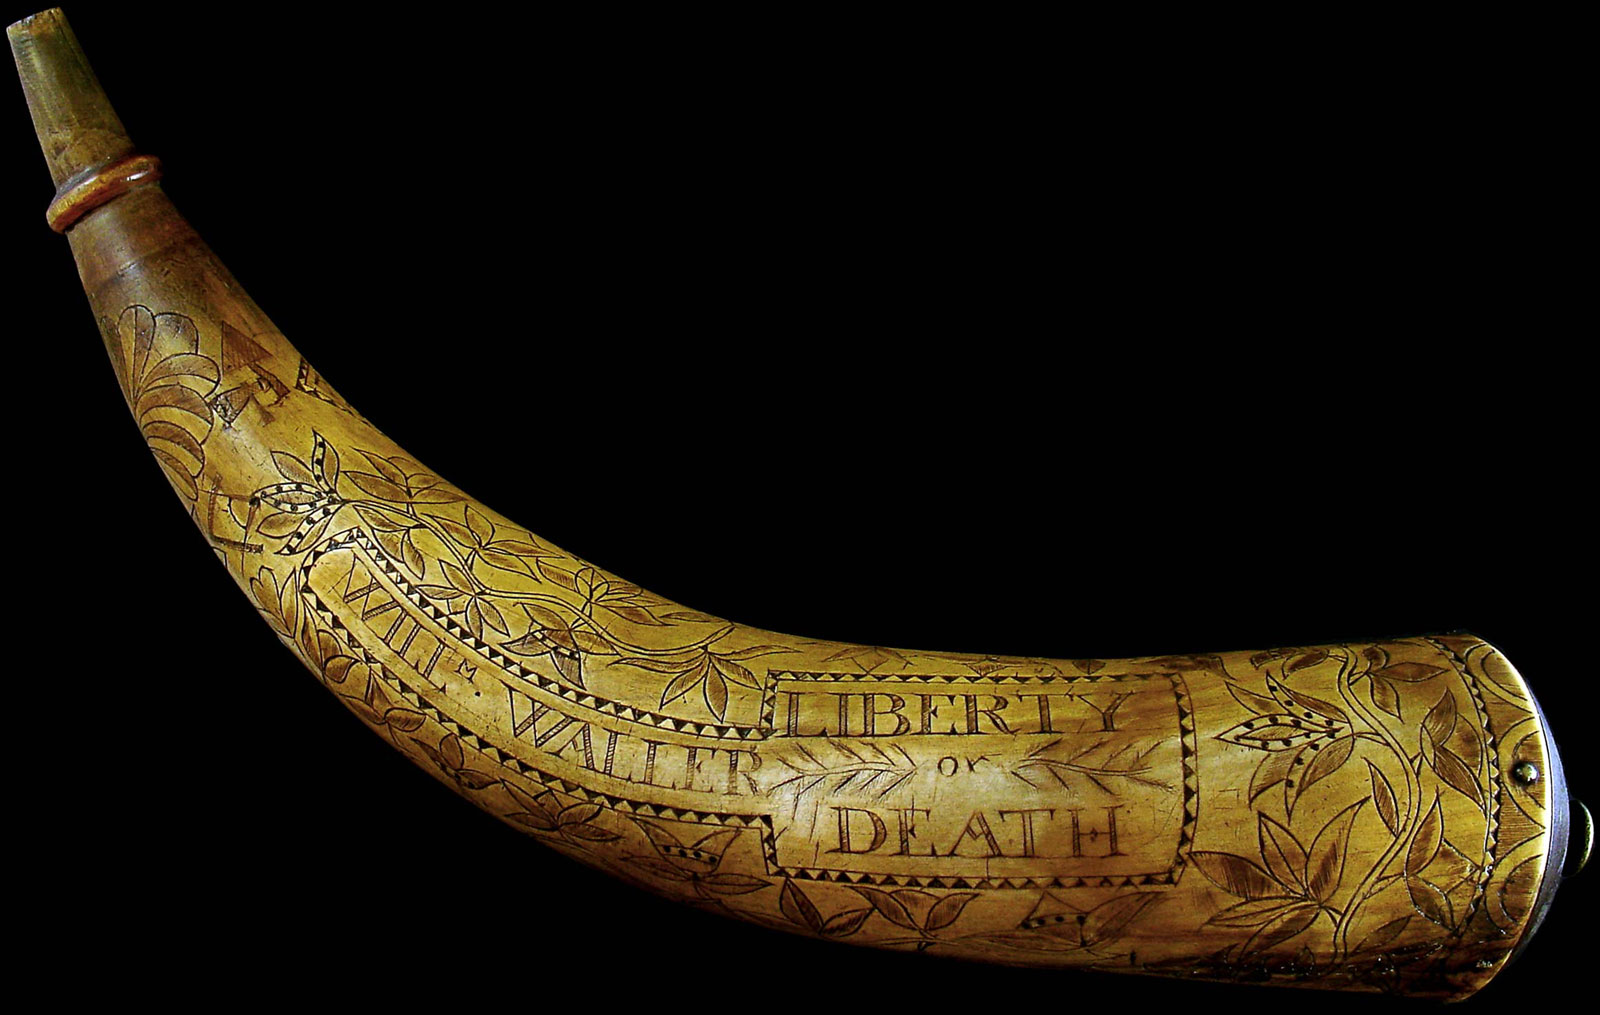 WILL.ᴹ WALLER
LIBERTY
or
DEATH